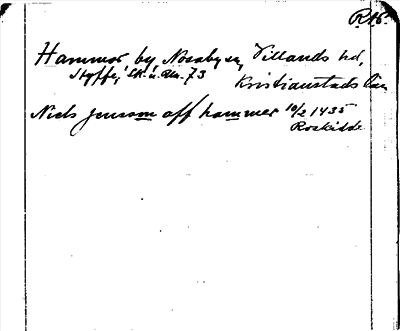 R.16.
Hammer, by, Nosaby sn, Villands hd,
Styffe, Sk. u. Un. 73
Kristianstads län
Niels Jenssøn aff hammer 10/2 1435
Roskilde